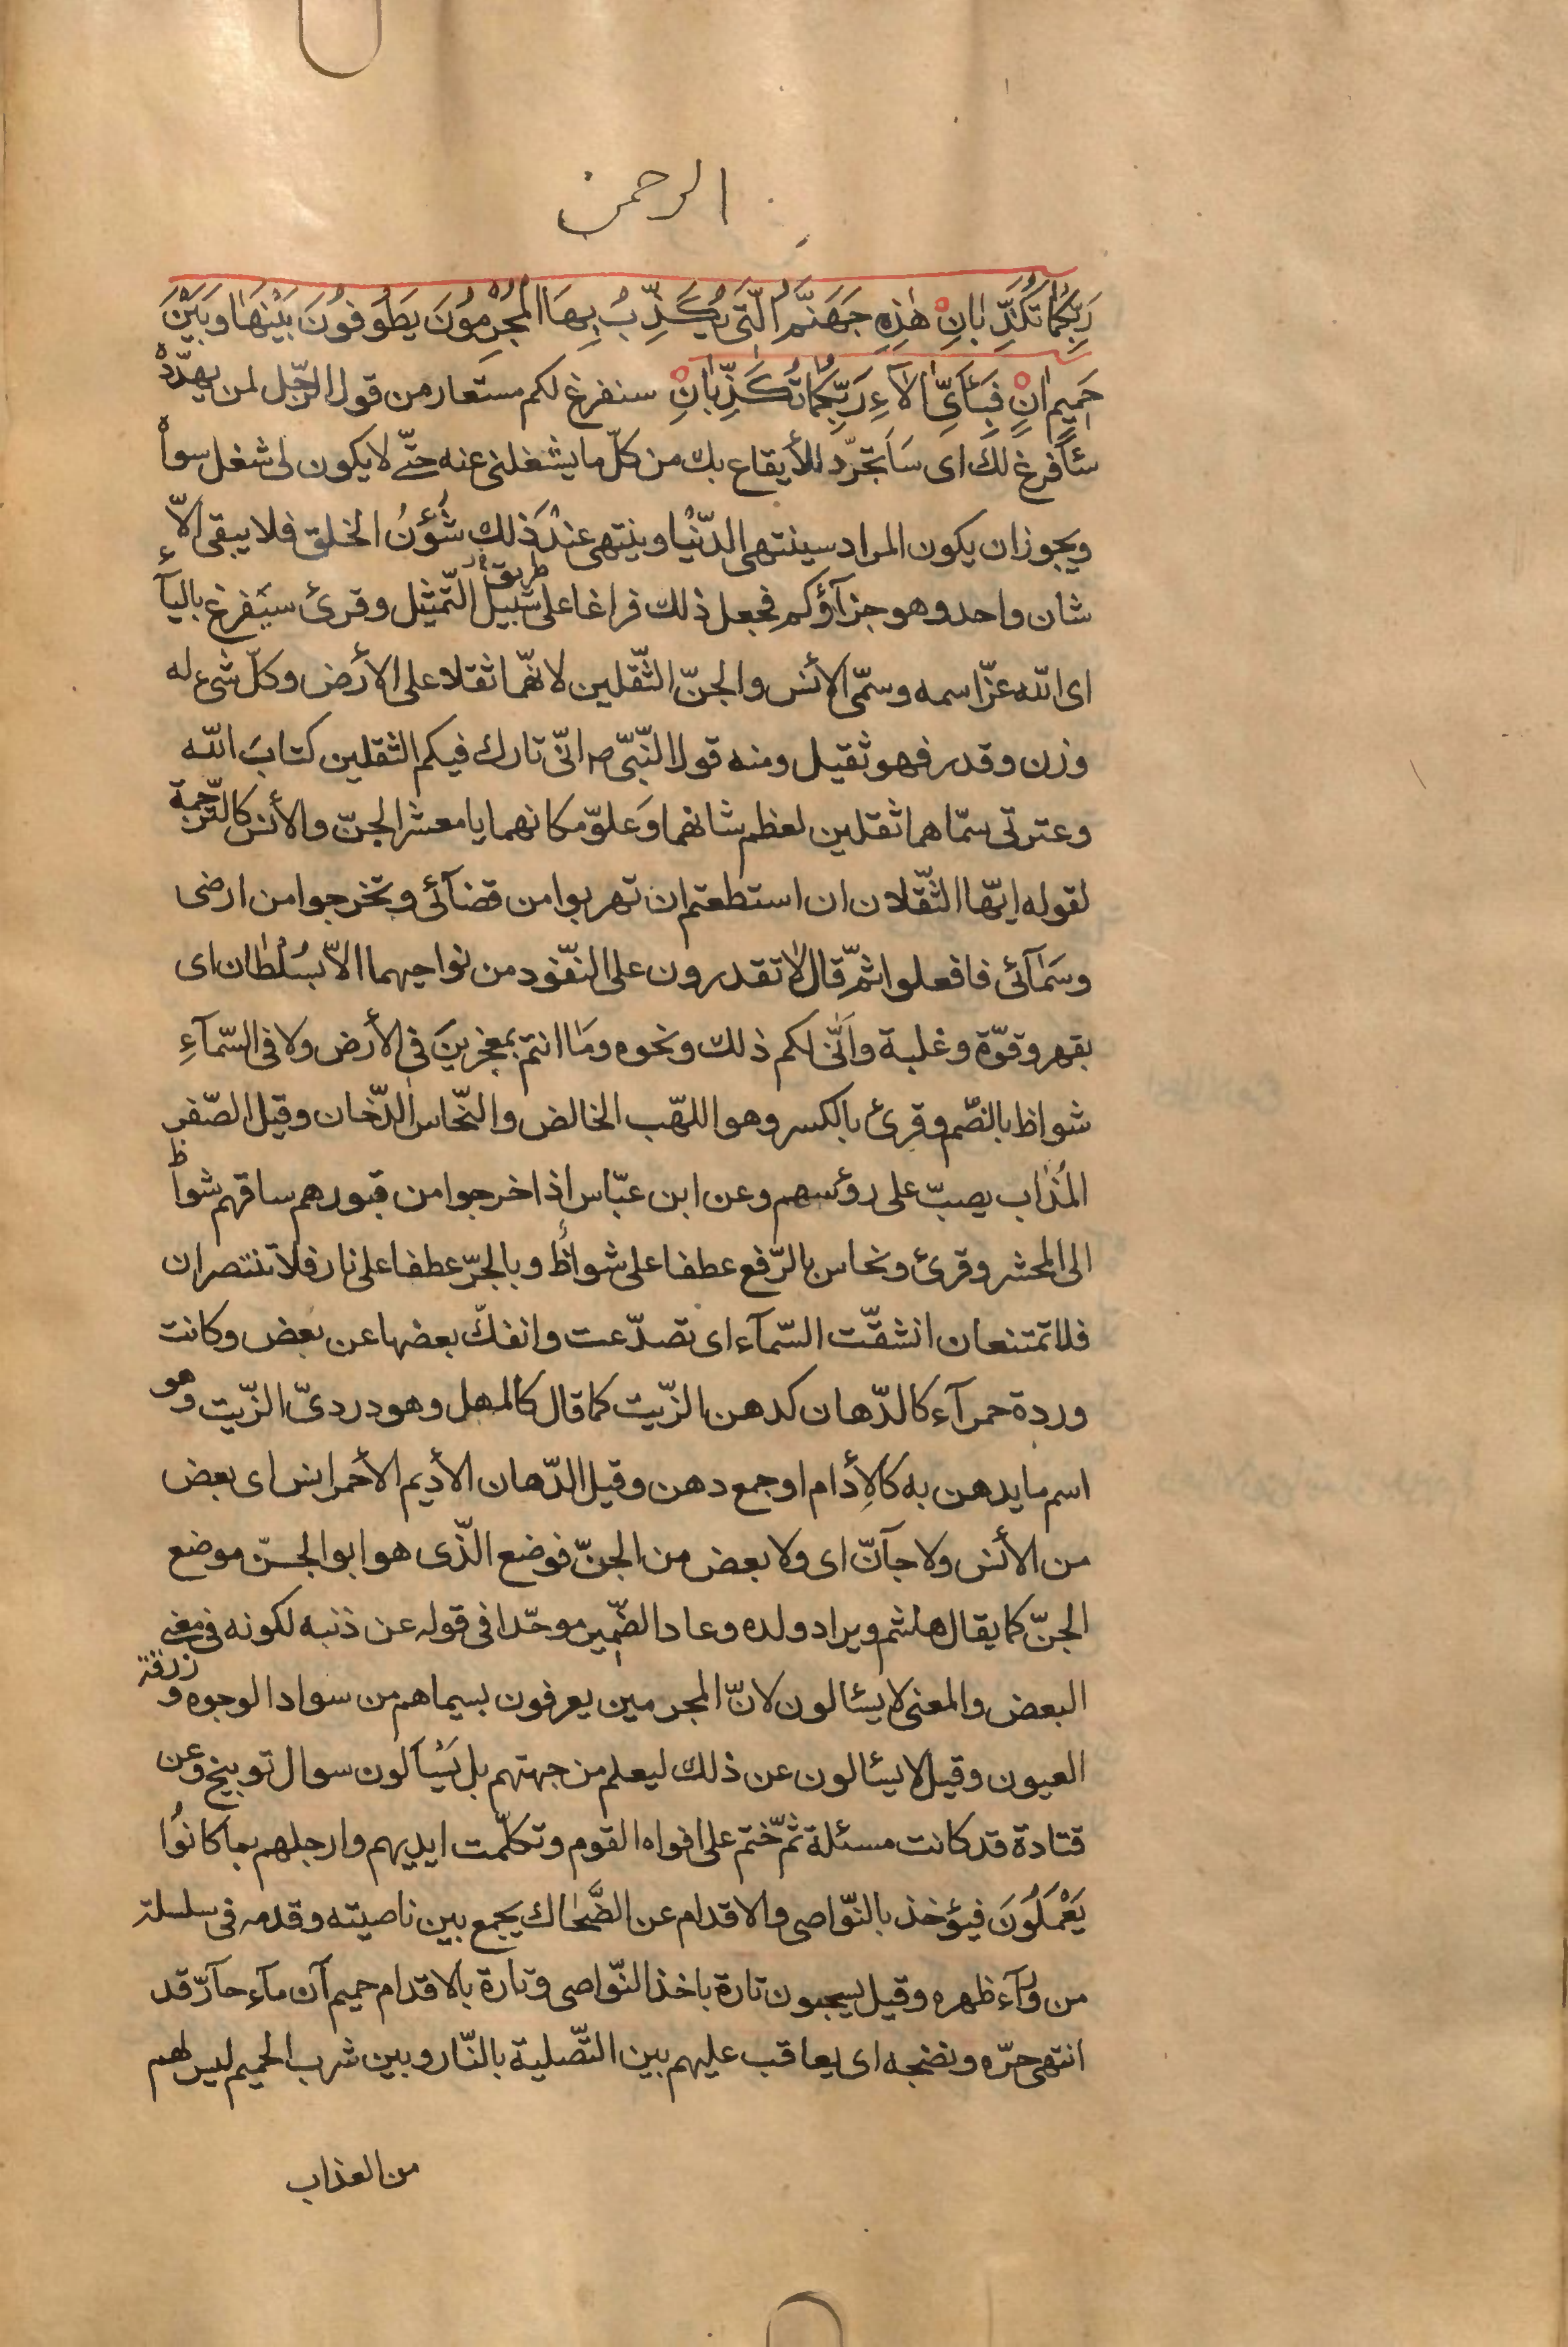 الرحمن
رَبِّكُمٰا تُكَذِّبٰانِ هٰذِهِ جَهَنَّمُ الَّتى يُكَذِّبُ بِهَا الْمُجْرِمُونَ يَطُوفُونَ بَيْنَهٰا وَبَيْنَ
حَمِيمٍ اٰنٍ فَبِاَىِّ اٰلآءِ رَبِّكُمٰا تُكَذِّبٰانِ سنفرغ لكم مستعار من قول الرّجل لمن يهدّده
سَأفرغ لك اى سَاَتجرّد للأيقاع بك من كلّ ما يشغلنى عنه حتّى لا يكون لى شغل سواه
ويجوز ان يكون المراد سينتهى الدّنيا وينتهى عند ذلك شُؤن الخلق فلا يبقى الاّ
شان واحد وهو جزآؤكم فجعل ذلك فراغا على سبيل طريق التّمثيل وقرئ سيَفرغ باليآء
اى اللّه عزّ اسمه وسمّى الأنس والجنّ الثّقلين لانّهما ثقلا على الأرض وكلّ شىء له
وزن وقدر فهو ثقيل ومنه قول النّبىّ ص انّى تارك فيكم الثقلين كتابَ اللّه
وعترتى سمّاهما ثقلين لعظم شانهما وَعلوّ مكانهما يا معشر الجنّ والأنس كالتّرجمة
لقوله ايّها الثّقلان ان استطعتم ان تهربوا من قضآئى وتخرجوا من ارضى
وسَمٰآئى فافعلوا ثمّ قال لا تقدرون على النفّود من نواحيهما الاّ بسُلْطٰان اى
بقهر وقوّة وغلبة واَنّى لكم ذلك ونحوه ومَا انتم بمعجزينَ فى الأرض ولا فى السّمآءِ
شواظ بالضّم وقرئ بالكسر وهو اللهّب الخالص والنّحاس الدّخان وقيل الصّفر
المُذاب يصبّ على رؤسهم وعن ابن عبّاس اذا خرجوا من قبورهم ساقهم شواظ
الى المحشر وقرئ ونحاس بالرّفع عطفا على شواظُ وبالجرّ عطفا على نار فلا تنتصران
فلا تمتنعان انشقّت السّمآء اى تصدّعت وانفكّ بعضها عن بعض وكانت
وردة حمرآء كالدّهان كدهن الزّيت كما قال كالمهل وهو دردىّ الزّيت وهو
اسم ما يدهن به كالأِدام او جمع دهن وقيل الدّهان الأديم الأحمر انس اى بعض
من الأنس ولا جآنّ اى ولا بعض من الجنّ فوضع الّذى هو ابو الجنّ موضع
الجنّ كما يقال هاشم ويراد ولده وعاد الضّمير موحّدا فى قوله عن ذنبه لكونه فى معنى
البعض والمعنى لا يسئالون لانّ المجرمين يعرفون بسيماهم من سواد الوجوه وزرقة
العيون وقيل لا يسئالون عن ذلك ليعلم من جهتهم بل يُسْاَلون سوال توبيخ وعن
قتادة قد كانت مسئلة ثمّ ختم على افواه القوم وتكلّمت ايديهم وارجلهم بما كانُوا
يَعْمَلُونَ فيؤخذ بالنّواصى والاقدام عن الضَّحٰاك يجمع بين ناصيته وقدمه فى سلسلة
من ورآء ظهره وقيل يسحبون تارة باخذ النّواصى وتارة بالاقدام حميم آن مآء حآرّ قد
انتهى حرّه ونضجه اى يعاقب عليهم بين التّصلية بالنّار وبين شرب الحميم ليس لهم
من العذاب